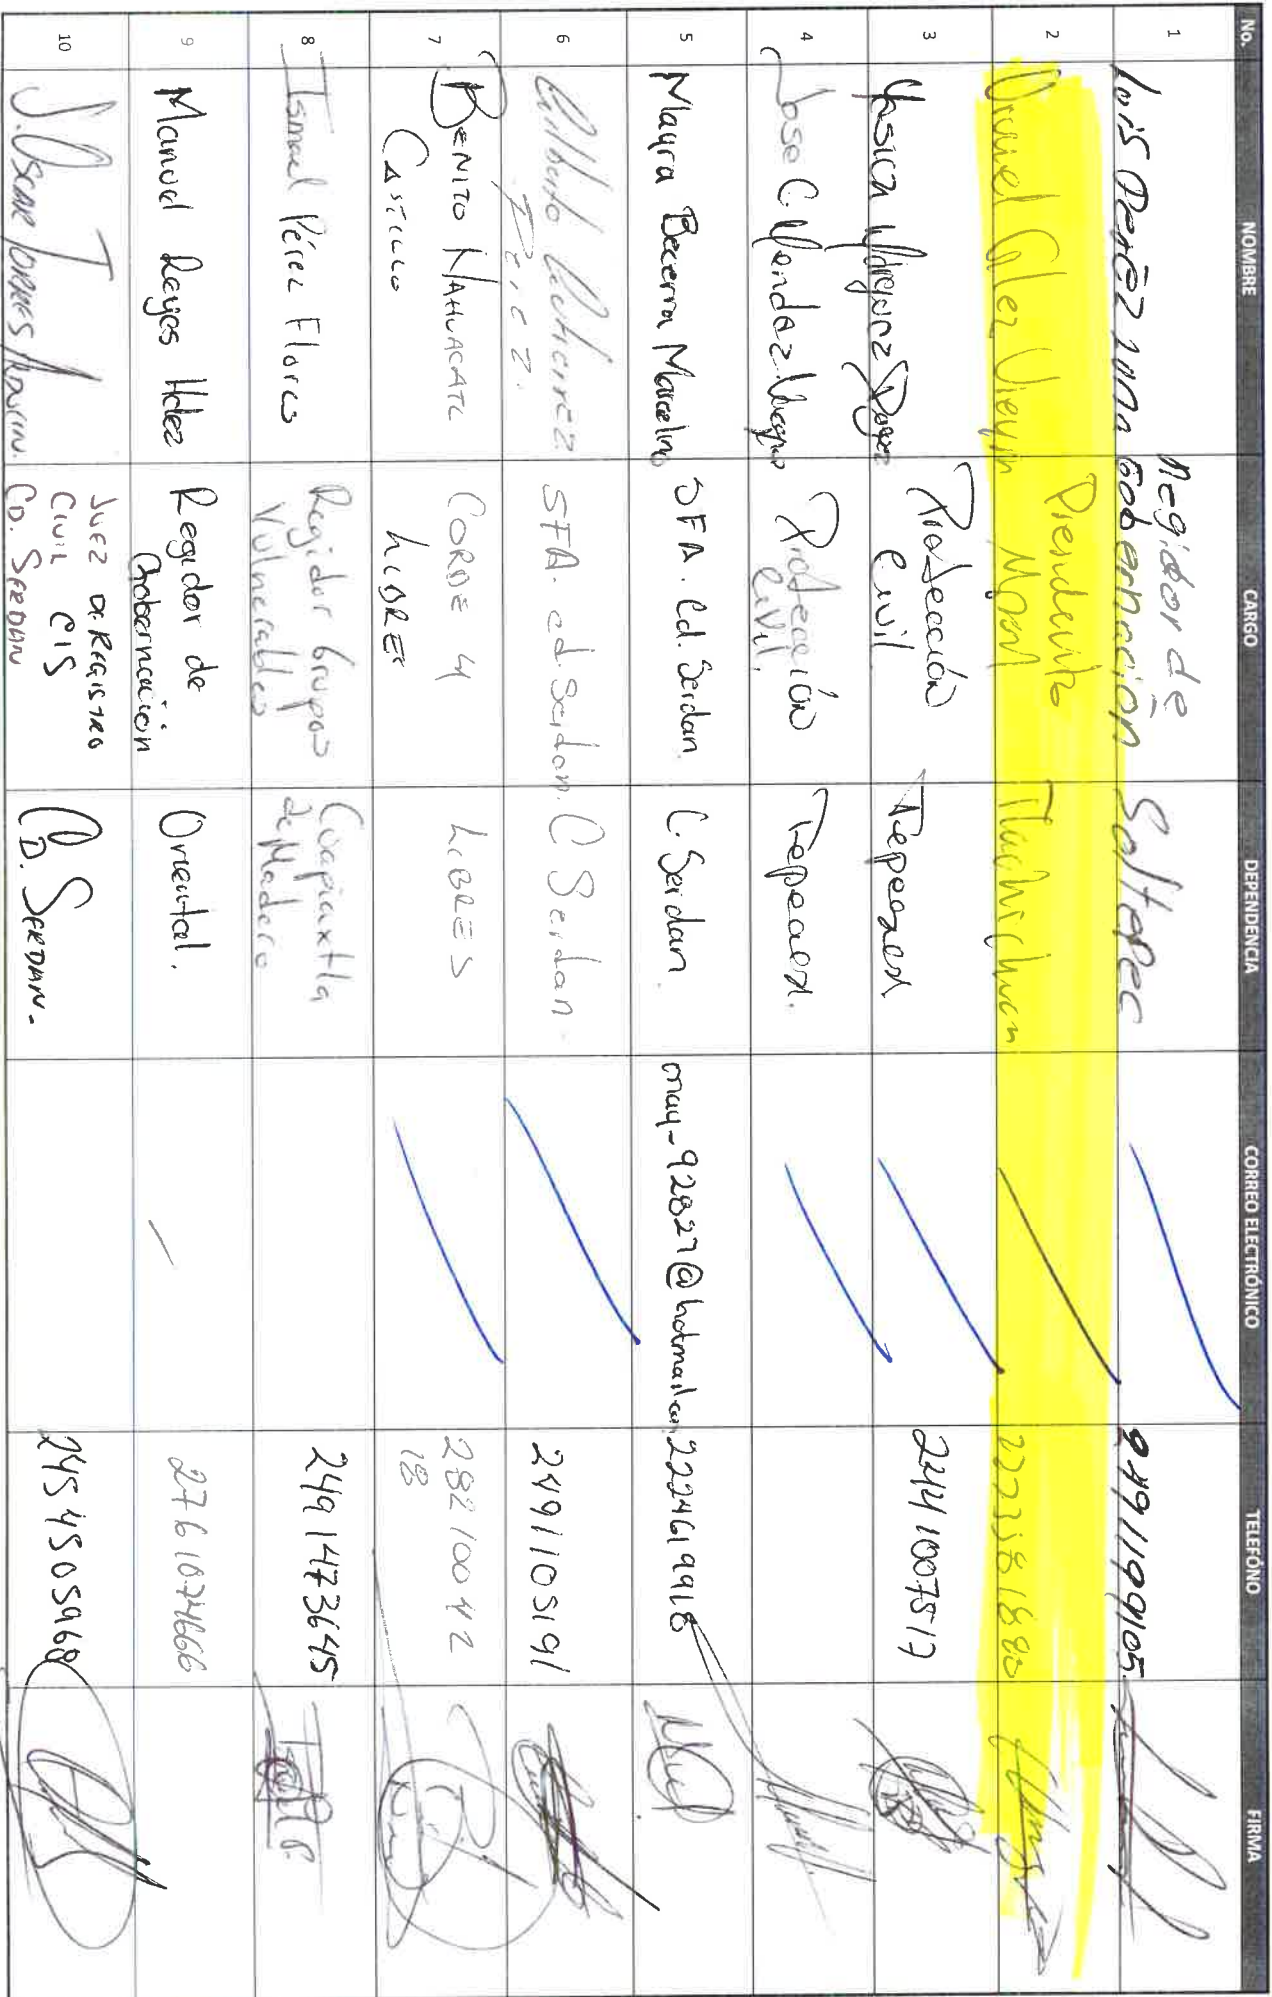 No. NOMBRE CARGO DEPENDENCIA CORREO ELECTRÓNICO TELEFÓNO FIRMA
1 Luis Perez Luna Regidor de Gobernacion Soltepec 2491199105
2 Presidente Mpal Tlachichuca
3 Protección Civil Tepeaca 2441007517
4 Jose C Mendez Protección Civil. Tepeaca.
5 Mayra Becerra Marcelino SFA. Cd. Serdan. C. Serdan. may-92827@hotmail.com 2224619918
6 Gilberto Gutierrez Perez. SFA. cd. Serdan. C Serdan. 2491105191
7 BENITO NAHUACATL CASTILLO CORDE 4 LIBRES LIBRES 282100042 18
8 Ismael Pérez Flores Regidor Grupos Vulnerables Cuapiaxtla de Madero 2491473645
9 Manuel Reyes Hdez Regidor de Gobernación Oriental. 2761074666
10 J. OSCAR TORRES JUEZ DE REGISTRO CIVIL CIS CD. SERDAN CD. SERDAN. 2454505968